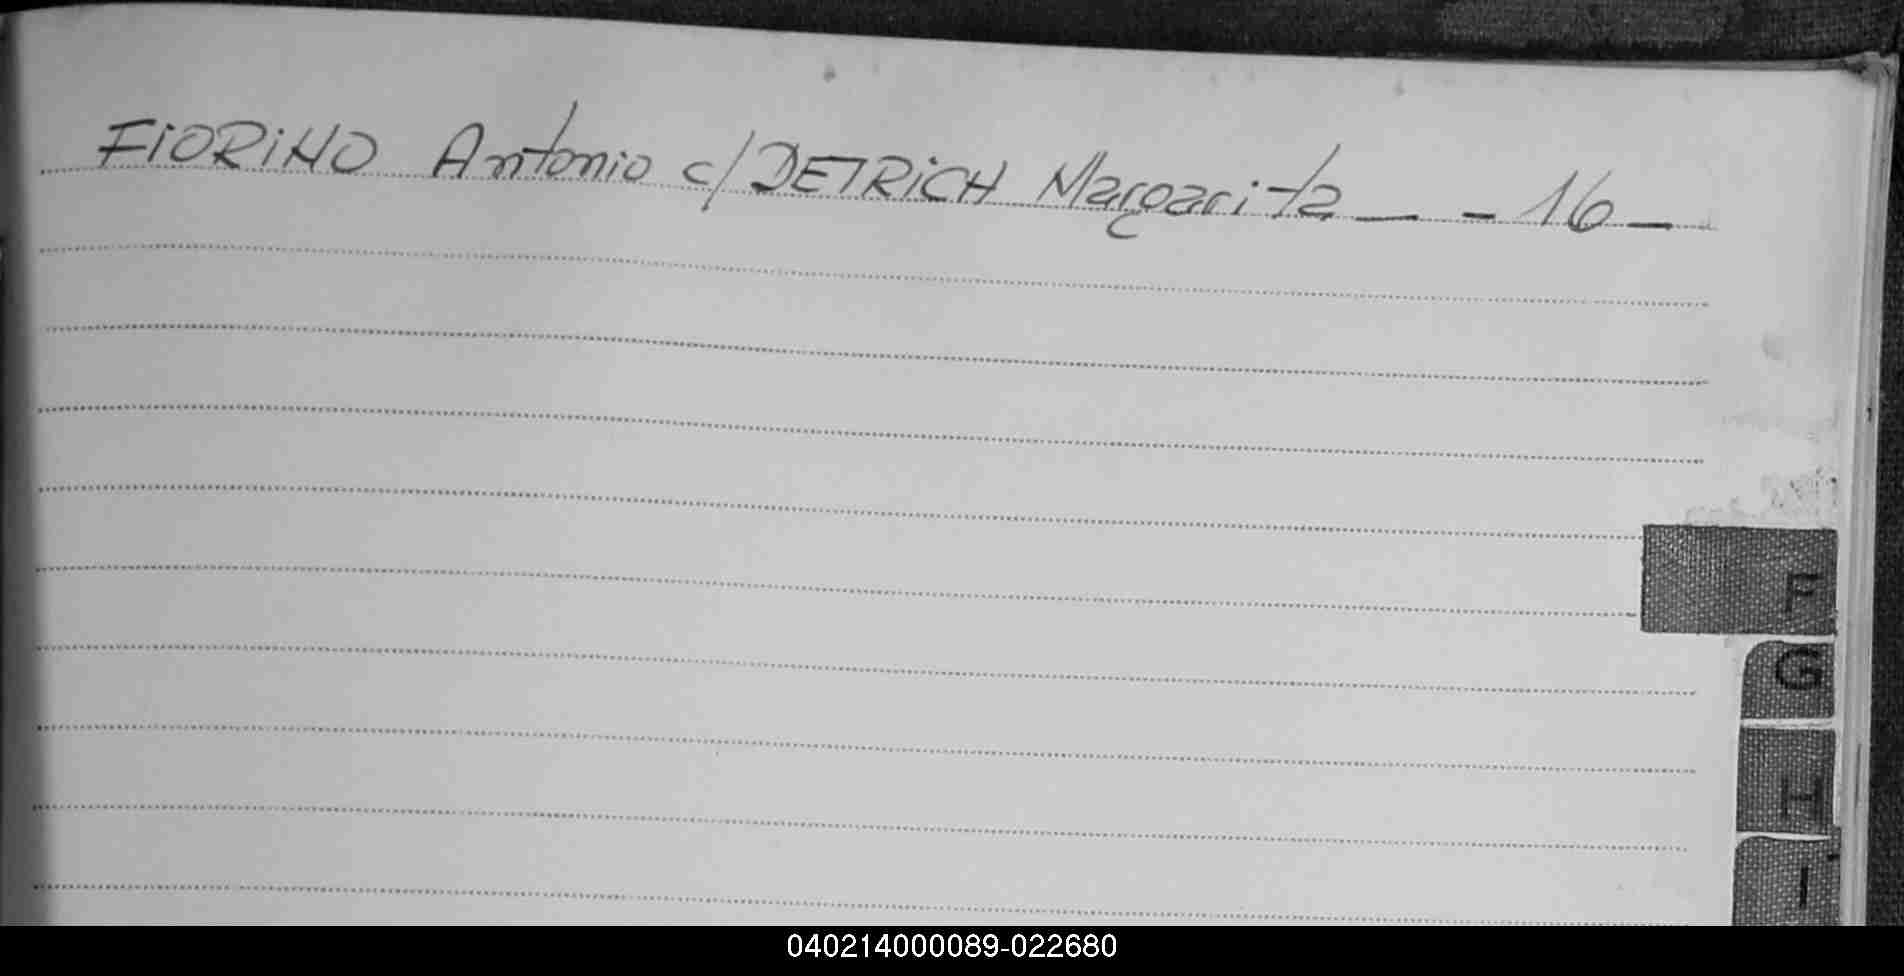 FIORINO Antonio c/ DETRICH Margarita — - 16 —
F
G
H
I
040214000089-022680